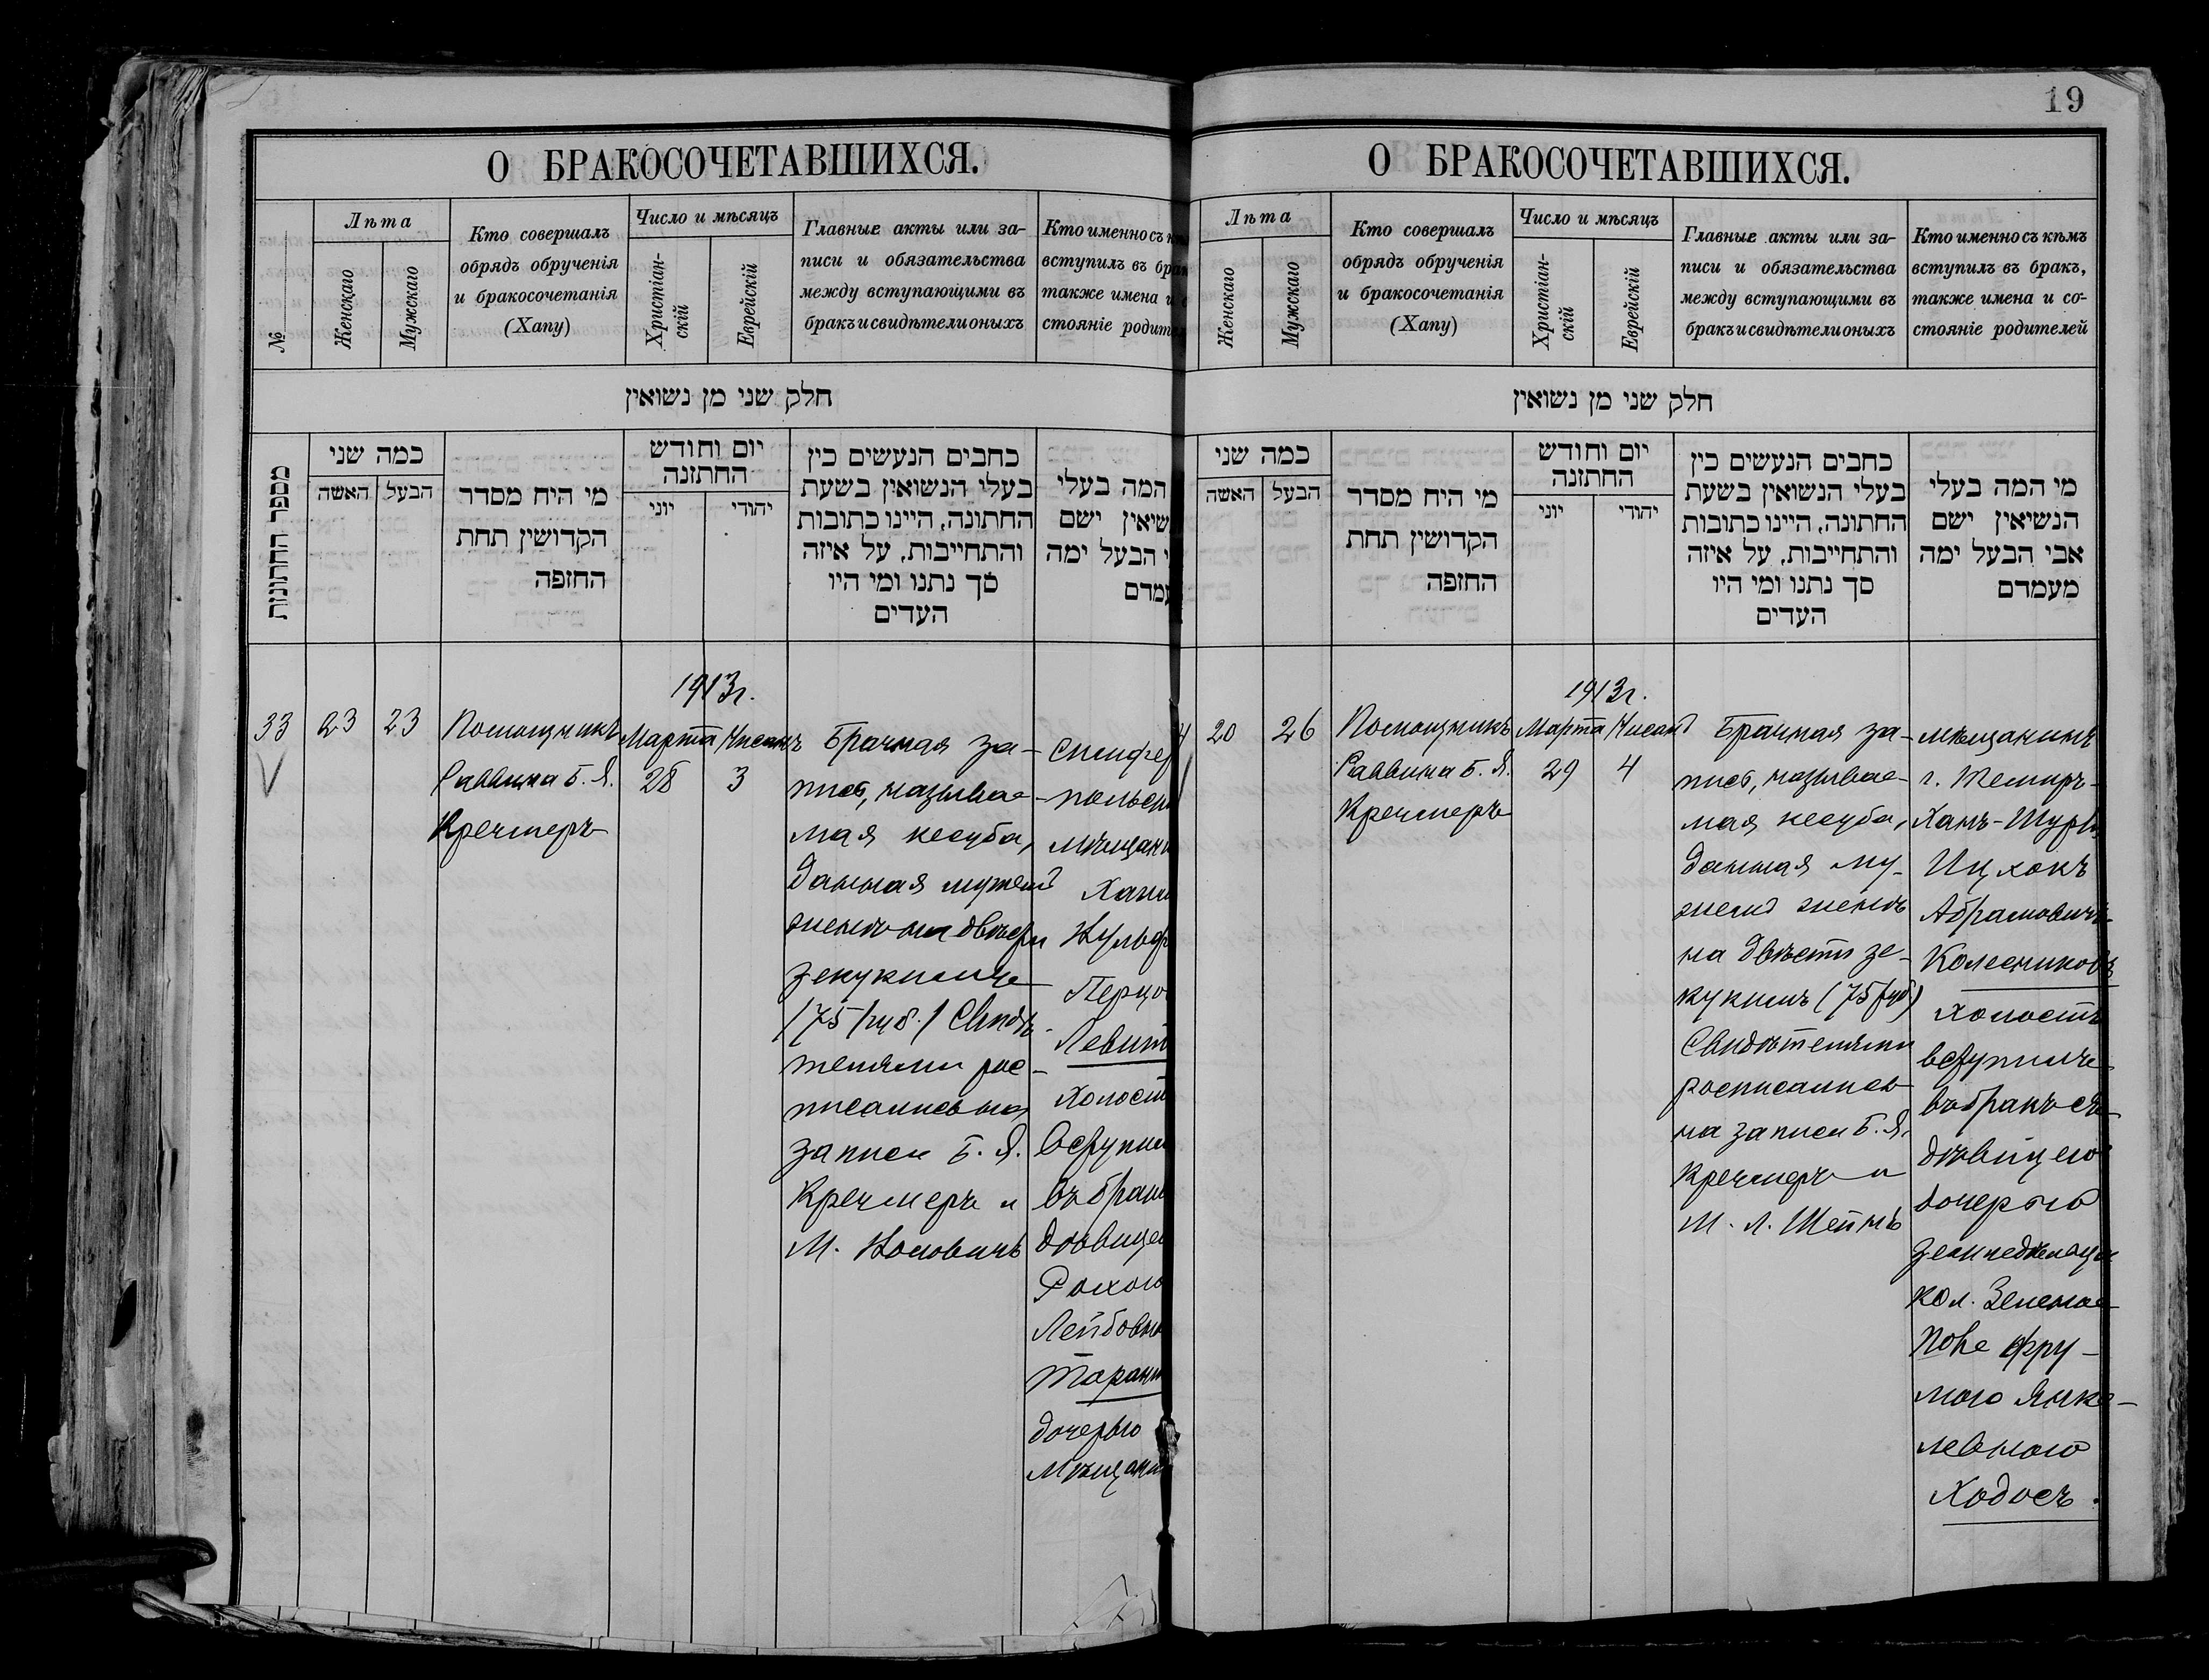 О БРАКОСОЧЕТАВШИХСЯ.
№
Лѣта
Женскаго
Мужскаго
Кто совершалъ
обрядъ обрученія
и бракосочетанія
(Хапу)
Число и мѣсяцъ
Христіан-
скій
Еврейскій
Главные акты или за-
писи и обязательства
между вступающими въ
бракъ и свидѣтели оныхъ
Кто именно съ
вступилъ въ
также имена
стояніе
חלק שני מן נשואין
מספר החתונות
כמה שני
האשה
הבעל
מי היח מסדר
הקדושין תחת
החזפה
יום וחודש
החתזנה
יוני
יהודי
כחבים הנעשים כין
בעלי הנשואין בשעת
החתונה, היינו כתובות
והתחייבות, על איזה
סך נתנו ומי היו
העדים
המה בעלי
ישם
הבעל ימה
1913г.
33
23
23
Помощникъ
Раввина Б. Я.
Кречмеръ
Марта
28
Нисанъ
3
Брачная за-
пись, называе-
мая кесуба,
данная мужемъ
женѣ на двѣсти
зекукимъ
(75 руб.) Свидѣ-
телями рос-
писались на
записи Б. Я.
Кречмеръ и
М.
Перцо
Левит
Холост
Вступил
въ брак
дѣвицею
Рохою
Лейбовн
дочерью
Мѣщани
19
О БРАКОСОЧЕТАВШИХСЯ.
Лѣта
Женскаго
Мужскаго
Кто совершалъ
обрядъ обрученія
и бракосочетанія
(Хапу)
Число и мѣсяцъ
Христіан-
скій
Еврейскій
Главные акты или за-
писи и обязательства
между вступающими въ
бракъ и свидѣтели оныхъ
Кто именно съ кѣмъ
вступилъ въ бракъ,
также имена и со-
стояніе родителей
חלק שני מן נשואין
כמה שני
האשה
הבעל
מי היח מסדר
הקדושין תחת
החזפה
יום וחודש
החתזנה
יוני
יהודי
כחבים הנעשים כין
בעלי הנשואין בשעת
החתונה, היינו כתובות
והתחייבות, על איזה
סך נתנו ומי היו
העדים
מי המה בעלי
הנשיאין ישם
אבי הבעל ימה
מעמדם
1913г.
20
26
Помощникъ
Раввина Б. Я.
Кречмеръ
Марта
29
Нисанъ
4
Брачная за-
пись, называе-
мая кесуба,
данная му-
жемъ женѣ
на двѣсти зе-
кукимъ (75 руб)
Свидѣтелями
росписались
на записи Б. Я.
Кречмеръ и
М. Л. Шейнъ
мѣщанинъ
г. Темиръ-
Ханъ-Шуры
Ицхокъ
Абрамовичъ
Колесниковъ
холостъ
вступилъ
въ бракъ съ
дѣвицею
дочерью
земледѣльца
кол. Зеленое
Поле Фру-
мою Янке-
левною
Ходосъ.